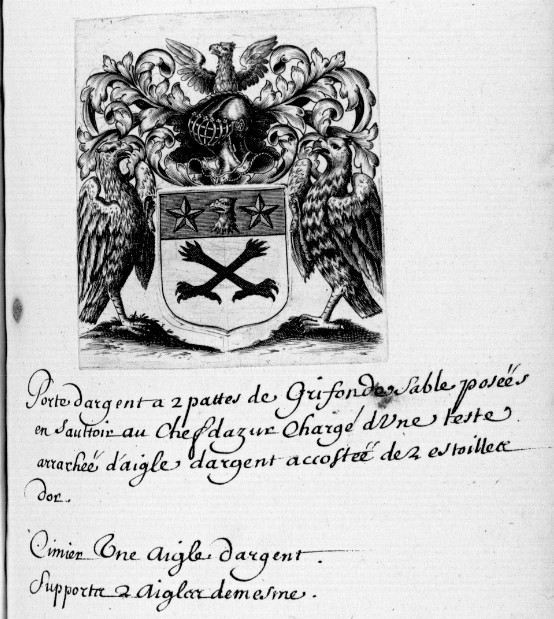 Porte dargent a 2 pattes de Grifon de Sable posées
en Saultoir au Chef dazur Chargé dUne teste
arrachéé d'aigle dargent accostéé de 2 estoilles
dor.
Cimier Une Aigle dargent.
Supports 2 Aigles demesme.